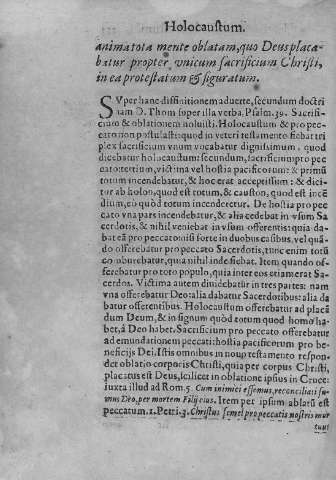 Holocaustum.
anima tota mente oblatam, quo Deus placa-
batur propter vnicum sacrificium Christi,
in ea protestatum & figuratum.
SVper hanc diffinitionem aduerte, secundum doctri
nam D. Thom super illa verba. Psalm. 39. Sacrifi-
cium & oblationem noluisti. Holocaustum & pro pec-
cato non postulasti: quod in veteri testamento fiebat tri
plex sacrificium vnum vocabatur dignissimum, quod
dicebatur holocaustum: secundum, sacrificium pro pec
cato: tertium, victima vel hostia pacificorum: & primū
totum incendebatur, & hoc erat acceptissimū: & dici-
tur ab holon, quod est totum, & causton, quod est incē
dium, eo quòd totum incenderetur. De hostia pro pec
cato vna pars incendebatur, & alia cedebat in vsum Sa
cerdotis, & nihil veniebat in vsum offerentis: quia da-
bat eā pro peccato: nisi forte in duobus casibus, vel quā-
do offerebatur pro peccato Sacerdotis, tunc enim totū
comburebatur, quia nihil inde fiebat. Item quando of-
ferebatur pro toto populo, quia inter eos etiam erat Sa-
cerdos. Victima autem diuidebatur in tres partes: nam
vna offerebatur Deo: alia dabatur Sacerdotibus: alia da
batur offerentibus. Holocaustum offerebatur ad placā
dum Deum, & in signum quòd totum quod homo ha-
bet, à Deo habet. Sacrificium pro peccato offerebatur
ad emundationem peccati: hostia pacificorum pro be-
neficijs Dei. Istis omnibus in nouo testamento respon-
det oblatio corporis Christi, quia per corpus Christi,
placatus est Deus, scilicet in oblatione ipsius in Cruce:
iuxta illud ad Rom. 5. Cum inimici essemus, reconciliati su-
mus Deo, per mortem Filij eius. Item per ipsum ablatū est
peccatum. 1. Petri. 3. Christus semel pro peccatis nostris mor
tuus